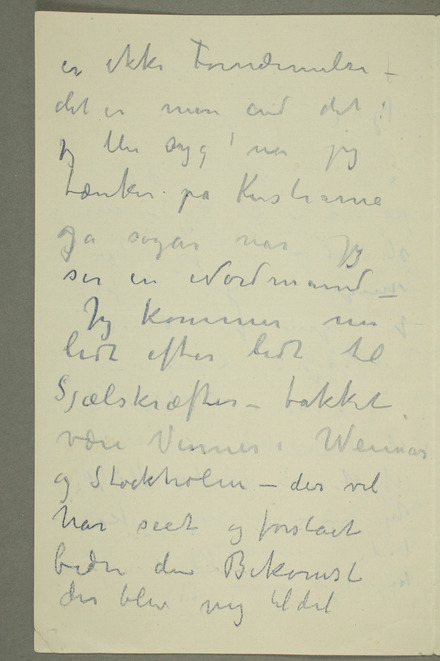 er ikke Fornærmelse –
det er mere end det!
jeg blir syg! når jeg
tænker på Kristiania
ja sogar når jeg
ser en Nordmand –
Jeg kommer nu
lidt efter lidt til
Sjælskræfter – takket
være Venner i Weimar
og Stockholm – der vel
har seet og forstaaet
den Bekomst
der blev mig tildel